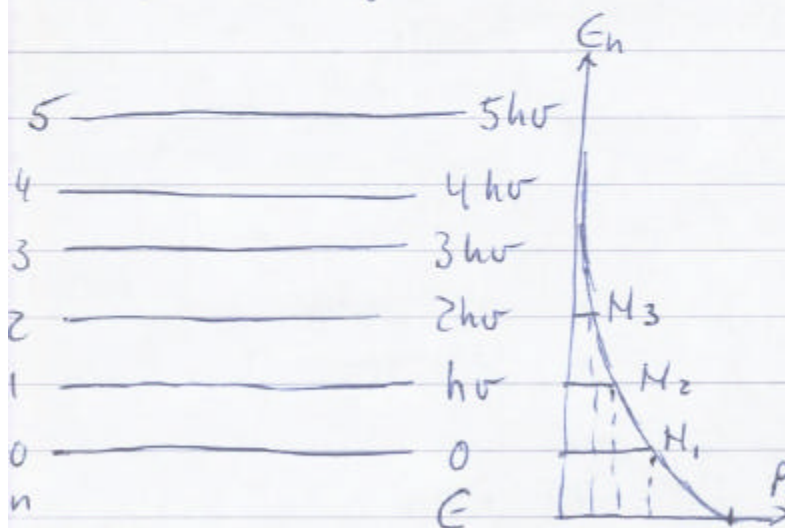 Єn
5 5hν
4 4hν
3 3hν
2 2hν M3
1 hν M2
0 0 M1
n Є P